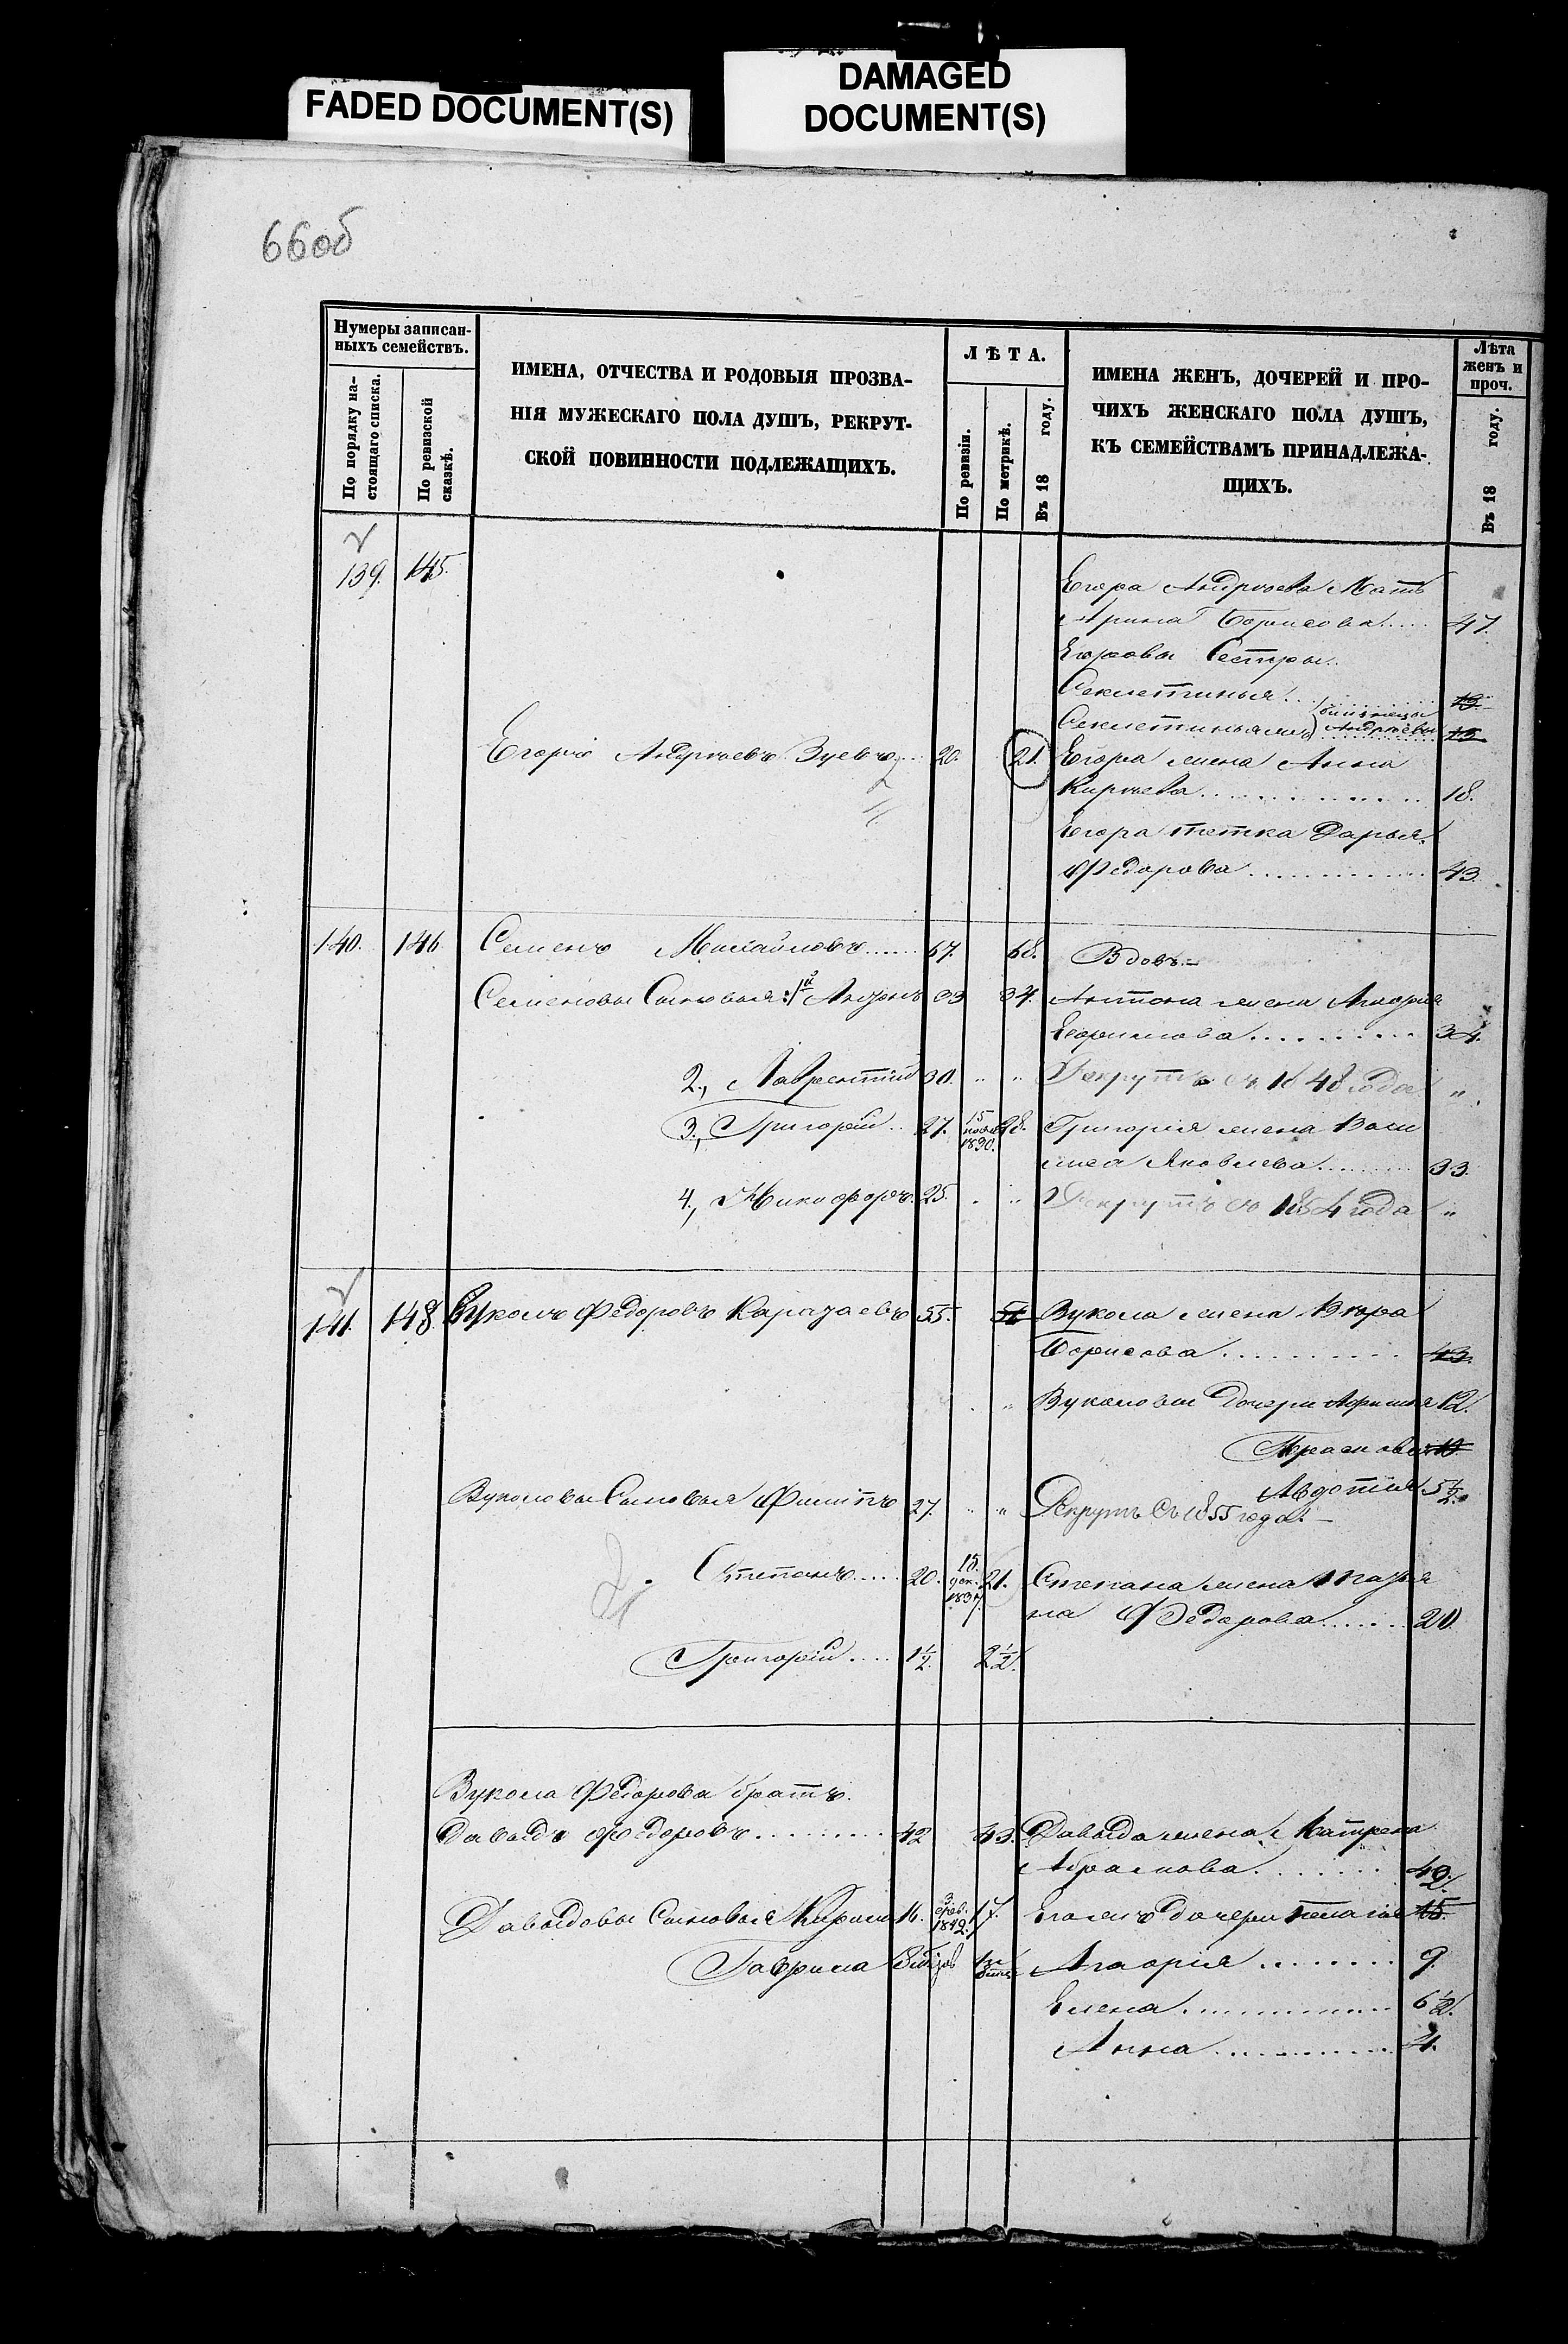 FADED DOCUMENT(S)
DAMAGED
DOCUMENT(S)
66об
Нумеры записан-
ныхъ семействъ.
По порядку на-
стоящаго списка.
По ревизской
сказкѣ.
ИМЕНА, ОТЧЕСТВА И РОДОВЫЯ ПРОЗВА-
НІЯ МУЖЕСКАГО ПОЛА ДУШЪ, РЕКРУТ-
СКОЙ ПОВИННОСТИ ПОДЛЕЖАЩИХЪ.
ЛѢТА.
По ревизіи.
По метрикѣ.
Въ 18 году.
ИМЕНА ЖЕНЪ, ДОЧЕРЕЙ И ПРО-
ЧИХЪ ЖЕНСКАГО ПОЛА ДУШЪ,
КЪ СЕМЕЙСТВАМЪ ПРИНАДЛЕЖА-
ЩИХЪ.
Лѣта
женъ и
проч.
Въ 18 году.
139. 145.
Егора Андреева Мать
Арина Борисова.... 47.
Егоровы Сестры.
Секлетинья
Андреевы
Егоръ Андреевъ Зуевъ... 20. 21. Егора жена Анна
Кирѣева............ 18.
Егора тетка Дарья
Федорова............ 43.
140. 146 Семенъ Михайловъ...... 67. 68. Вдовъ.-
Семеновы Сыновья: 1й Антонъ 33 34. Антона жена Агафья
Ефимова.......... 34.
2., Лаврентій 30. " " Рекрутъ съ 1848 года "
3., Григорій.. 27. 15 нояб. 1830. 28. Григорія жена Васи
лиса Яковлева........ 33.
4., Никифоръ. 25. . " Рекрутъ съ 1854 года "
141. 148. Вуколъ Федоровъ 55. Вукола жена
Борисова.......... 43.
" Вуколовы Дочери 12.
Авдотья 5½.
Вуколовы Сыновья Филипъ 27. " Рекрутъ съ 1855 года.-
Степанъ.... 20. 18. дек. 1837. 21. Степана жена Марья
на Федорова...... 20
Григорій.... 1½. 2½.
Вукола Федорова братъ.
Давыдъ Федоровъ......... 42 43. Давыда жена Матрена
Абрамова.......
Давыдовы Сыновья Кирила 16. 3 фев. 1842. 17. дочери Пелагея 15.
Гаврила Агафья........ 9.
Елена............... 6½.
Анна............. 4.